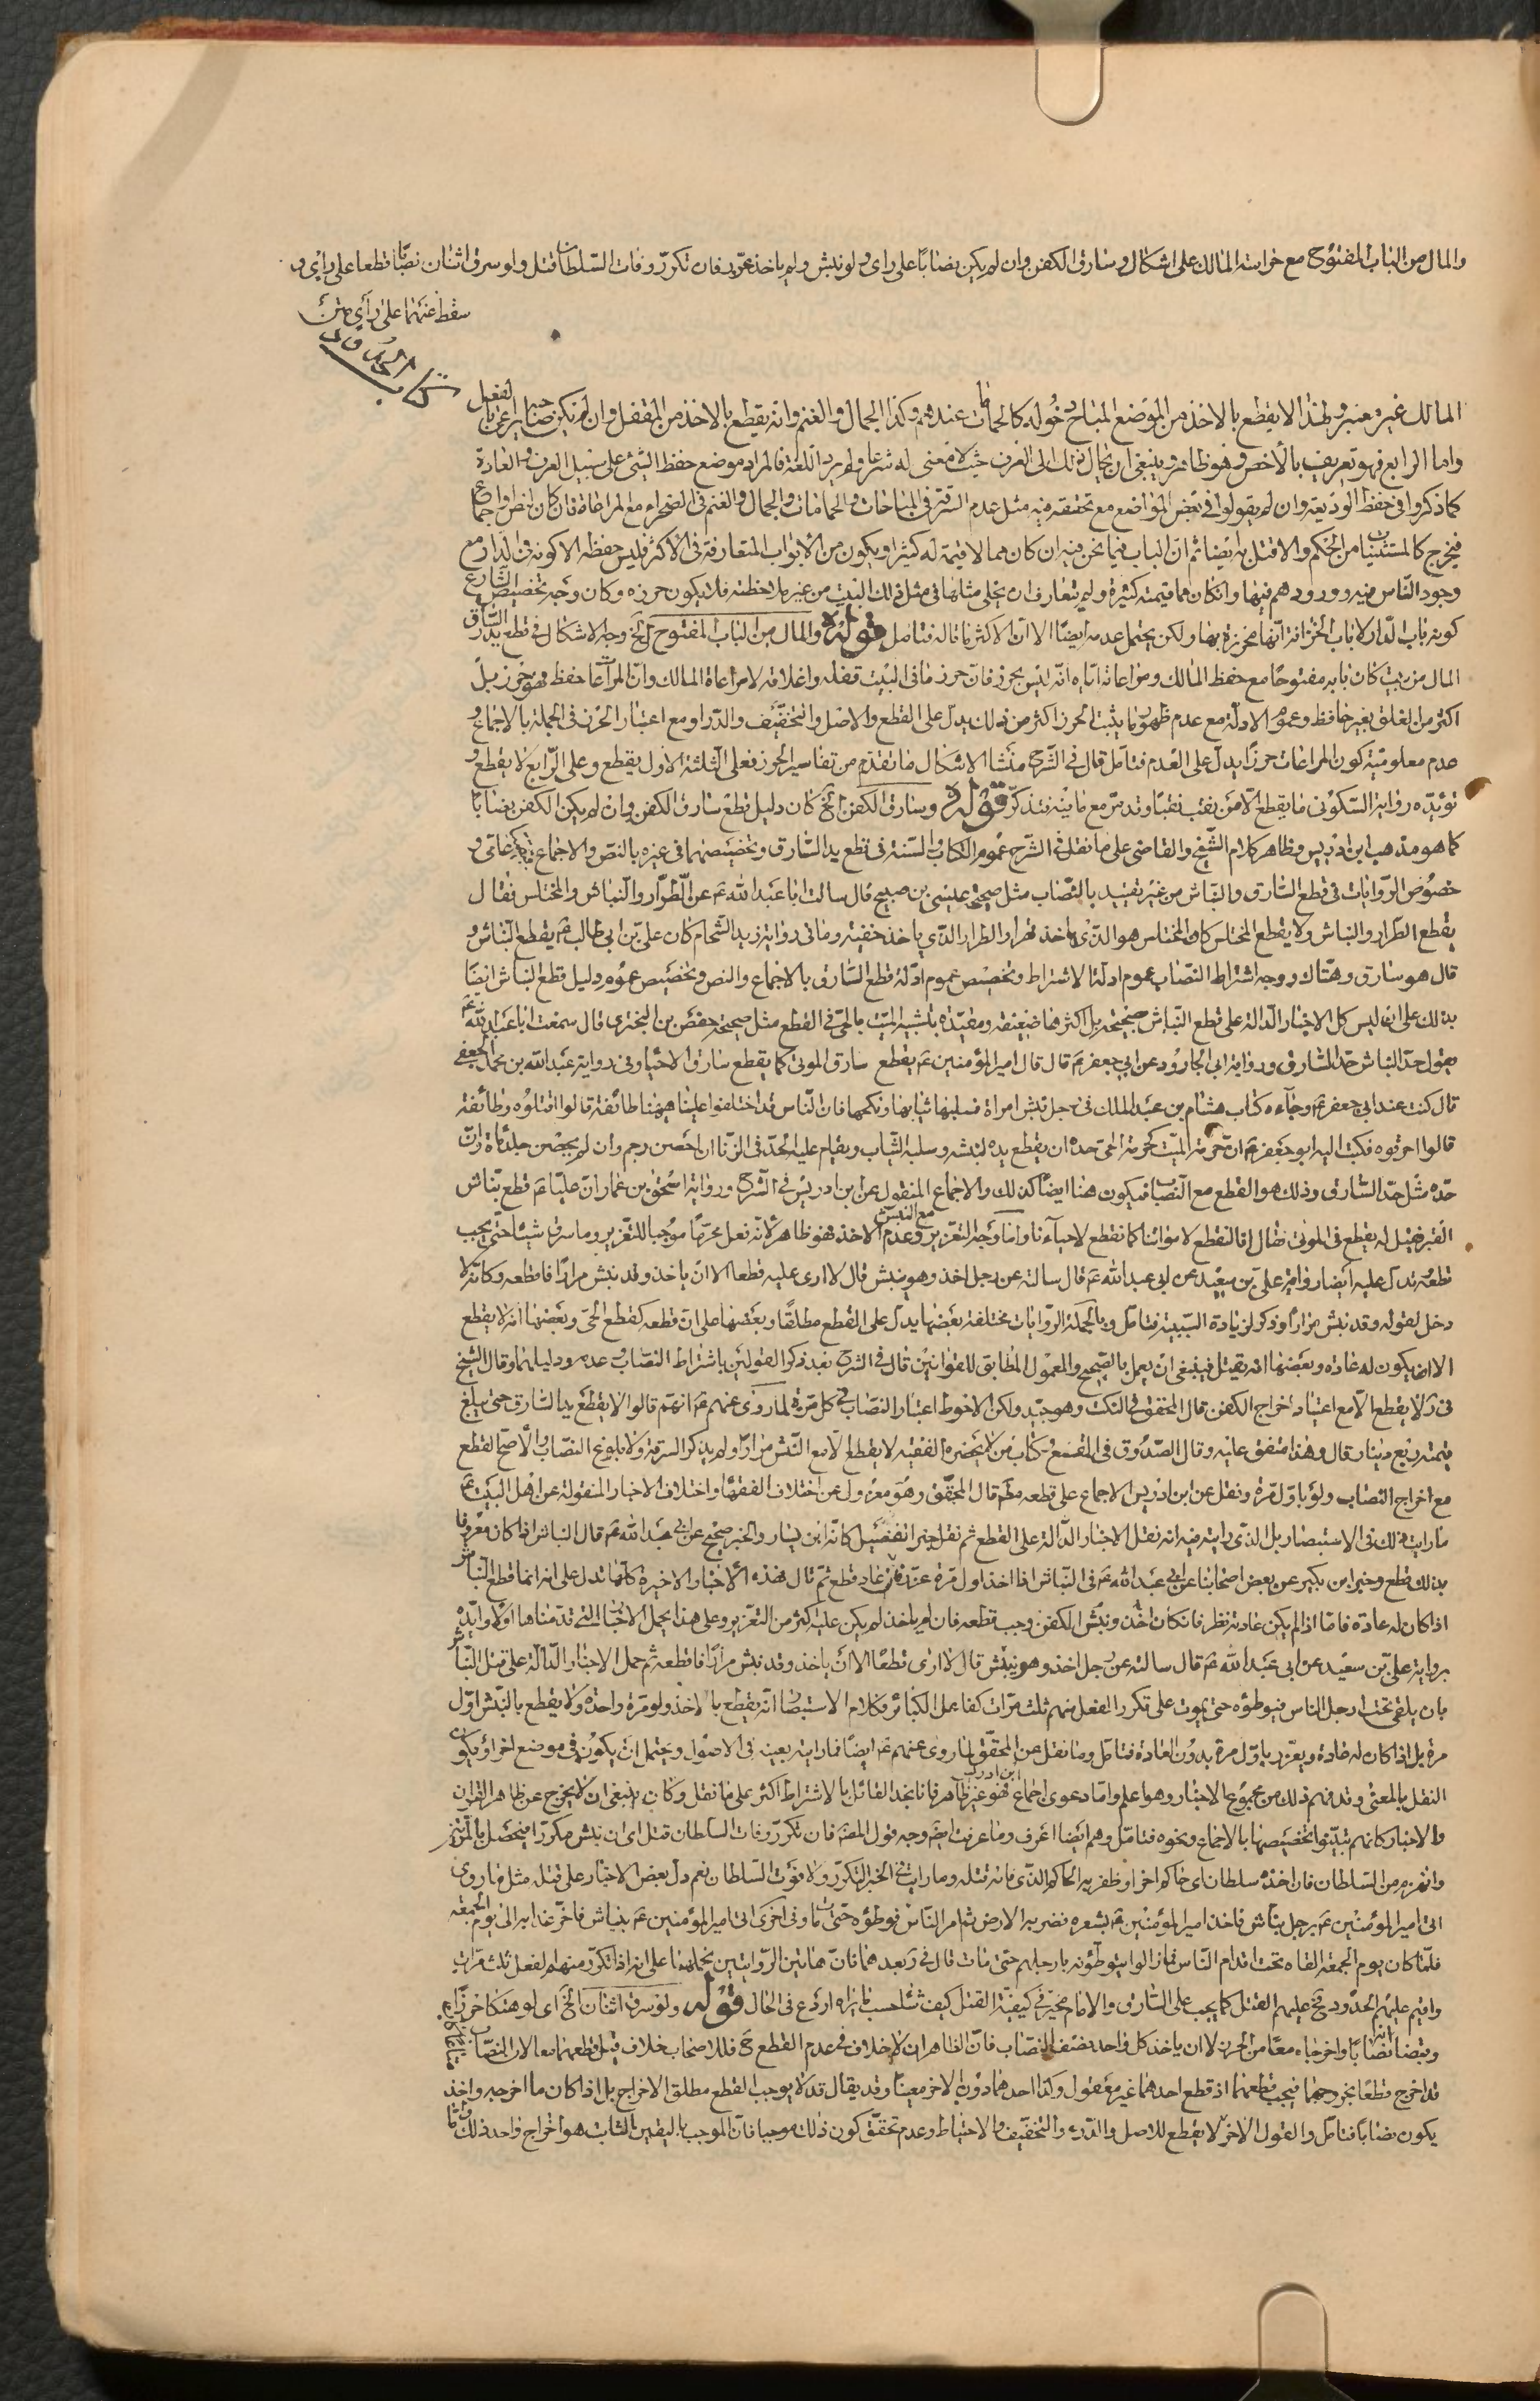 والمال من الباب المفتوح مع حراسة المالك على اشكال وسارق الكفن وان لم يكن نصابا على راى ولو نبش ولم ياخذ عزر فان تكرر وفات السلطان قتل ولو سرق اثنان نصابا قطعا على راى و
سقط عنهما على راى متن
كتاب الحدود
المالك غير معتبر ولهذا لا يقطع بالاخذ من الموضع المباح دخوله كالحمامات عندهم وكذا الجمال والغنم وانه يقطع بالاخذ من المقفل وان لم يكن صاير اعتبار لفعل
واما الرابع فهو تعريف بالاخص وهو ظاهر وينبغى ان يحال ذلك الى العرف حيث لا معنى له شرعا ولم يرد اللغة فالمراد موضع حفظ الشئ على سبيل العرف والعادة
كما ذكروا فى حفظ الوديعة وان لم يقولوا فى بعض المواضع مع تحققه فيه مثل عدم السرقة فى المباحات والحمامات والجمال والغنم فى الصحراء مع المراعاة فان كان نص او اجماع
فيخرج كالمستثنيات من الحكم والا قتل به ايضا ثم ان الباب فيما نحن فيه ان كان مما لا قيمة له كثيرا ويكون من الابواب المتعارفة فى الاكثر فليس حفظه الا كونه فى الدار مع
وجود الناس فيه وورودهم فيها وان كان مما قيمته كثيرة ولم يتعارف ان يخلى مثلها فى مثل ذلك البيت من غير ملاحظته فلا يكون حرزه وكان وجه تخصيص الشارع
كونه باب الدار لا باب الخزانة انها محرزة بها ولكن يحتمل عدمه ايضا الا ان الاكثر ما قاله فتامل قوله والمال من الباب المفتوح الخ وجه الاشكال فى قطع يد السارق
المال من بيت كان بابه مفتوحا مع حفظ المالك ومراعاته اياه انه ليس بحرز فان حرز ما فى البيت قفله واغلاقه لا مراعاة المالك وان المراعات حفظ فهو حرز بل
اكثر من الغلق بغير حافظ وعموم الادلة مع عدم ظهور ما يثبت الحرز اكثر من ذلك يدل على القطع والاصل والتخفيف والدرا ومع اعتبار الحرز فى الجملة بالاجماع و
عدم معلومية كون المراعات حرزا يدل على العدم فتامل قال فى الشرح منشا الاشكال ما تقدم من تفاسير الحرز فعلى الثلثة الاول يقطع وعلى الرابع لا يقطع و
تؤيده رواية السكونى ما يقطع الا من نقب نقبا وقد مر مع ما فيه فتذكر قوله وسارق الكفن الخ كان دليل قطع سارق الكفن وان لم يكن الكفن نصابا
كما هو مذهب ابن ادريس وظاهر كلام الشيخ والقاضى على ما نقل فى الشرح عموم الكتاب والسنة فى قطع يد السارق وتخصيصهما فى غيره بالنص والاجماع
خصوص الروايات فى قطع السارق والنباش من غير تقييد بالنصاب مثل صحيحة عيسى بن صبيح قال سالت ابا عبد الله ع عن الطرار والنباش والمختلس فقال
يقطع الطرار والنباش ولا يقطع المختلس كان المختلس هو الذى ياخذ قهرا والطرار الذى ياخذ خفية وما فى رواية زيد الشحام كان على بن ابى طالب ع يقطع النباش و
قال هو سارق وهتاك ووجه اشتراط النصاب عموم ادلة الاشتراط وتخصيص عموم ادلة قطع السارق بالاجماع والنص وتخصيص عموم دليل قطع النباش ايضا
بذلك على ان ليس كل الاخبار الدالة على قطع النباش صحيحة بل اكثرها ضعيفة ومقيدة بتشبيه الميت بالحى فى القطع مثل صحيحة حفص بن البخترى قال سمعت ابا عبد الله ع
يقول حد النباش حد السارق ورواية ابى الجارود عن ابى جعفر ع قال قال امير المؤمنين ع يقطع سارق الموتى كما يقطع سارق الاحياء وفى رواية عبد الله بن محمد الجعفى
قال كنت عند ابى جعفر ع وجاءه كتاب هشام بن عبد الملك فى رجل نبش امراة فسلبها ثيابها ونكحها فان الناس قد اختلفوا علينا ههنا طائفة قالوا اقتلوه وطائفة
قالوا احرقوه فكتب اليه ابو جعفر ع ان حرمة الميت كحرمة الحى حده ان يقطع يده لنبشه وسلبه الثياب ويقام عليه الحد فى الزنا ان احصن رجم وان لم يحصن جلد مائة وان
حده مثل حد السارق وذلك هو القطع مع النصاب فيكون هنا ايضا كذلك والاجماع المنقول عن ابن ادريس فى الشرح ورواية اسحق بن عمار ان عليا ع قطع نباش
القبر فقيل له يقطع فى الموتى فقال انا لنقطع لامواتنا كما نقطع لاحيائنا واما وجه التعزير وعدم الاخذ مع النبش فهو ظاهر لانه فعل محرما موجبا للتعزير وما سرق شيئا حتى يجب
قطعه تدل عليه ايضا رواية على بن سعيد عن ابى عبد الله ع قال سالته عن رجل اخذ وهو ينبش قال لا ارى عليه قطعا الا ان ياخذ وقد نبش مرارا فاقطعه وكانه لا
دخل لقوله وقد نبش مرارا وذكر لزيادة السببية فتامل وبالجملة الروايات مختلفة بعضها يدل على القطع مطلقا وبعضها على ان قطعه كقطع الحى وبعضها انه لا يقطع
الا ان يكون له عادة وبعضها انه يقتل فينبغى ان يعمل بالصحيح والمعمول المطابق للقوانين قال فى الشرح بعد ذكر القولين باشتراط النصاب وعدمه ودليلهما وقال الشيخ
فى لا يقطع الا مع اعتياد اخراج الكفن قال المحقق فى النكت وهو جيد ولكن الاحوط اعتبار النصاب فى كل مرة لما روى عنهم ع انهم قالوا لا يقطع يد السارق حتى يبلغ
قيمته ربع دينار قال وهذا متفق عليه وقال الصدوق فى المقنع وكتاب من لا يحضره الفقيه لا يقطع الا مع النبش مرارا ولم يذكر السرقة ولا بلوغ النصاب والاصح القطع
مع اخراج النصاب ولو باول مرة ونقل عن ابن ادريس الاجماع على قطعه مطلقا قال المحقق وهو معزول عن اختلاف الفقهاء واختلاف الاخبار المنقولة عن اهل البيت ع
ما رايت ذلك فى الاستبصار بل الذى رايته فيه انه نقل الاخبار الدالة على القطع ثم نقل خبر الفضيل كانه ابن يسار والخبر صحيح عن ابى عبد الله ع قال النباش اذا كان معروفا
بذلك قطع وخبر ابن بكير عن بعض اصحابنا عن ابى عبد الله ع فى النباش اذا اخذ اول مرة عزر فان عاد قطع ثم قال فهذه الاخبار الاخيرة كلها تدل على انه انما قطع النباش
اذا كان له عادة فاما اذا لم يكن عادته نظر فان كان اخذ ونبش الكفن وجب قطعه فان لم ياخذ لم يكن عليه اكثر من التعزير وعلى هذا يحمل الاخبار التى قدمناها اولا وايده
برواية على بن سعيد عن ابى عبد الله ع قال سالته عن رجل اخذ وهو ينبش قال لا ارى قطعا الا ان ياخذ وقد نبش مرارا فاقطعه ثم حمل الاخبار الدالة على قتل النباش
بان يلقى تحت ارجل الناس فيوطؤه حتى يموت على تكرر الفعل منهم ثلث مرات كفاعل الكبائر فكلام الاستبصار انه يقطع بالاخذ ولو مرة واحدة ولا يقطع بالنبش اول
مرة بل اذا كان له عادة ويعزر باول مرة بدون العادة فتامل وما نقل عن المحقق لما روى عنهم ع ايضا فما رايته بعينه فى الاصول ويحتمل ان يكون فى موضع اخر او يكون
النقل بالمعنى وقد فهم ذلك من مجموع الاخبار وهو اعلم واما دعوى اجماع ابن ادريس فهو غير ظاهر فانا نجد القائل بالاشتراط اكثر على ما نقل وكان ينبغى ان لا يخرج عن ظاهر القران
والاخبار كانهم تبينوا تخصيصها بالاجماع ونحوه فتامل وهم ايضا اعرف وما عرفت ايضا وجه قول المصنف فان تكرر وفات السلطان قتل اى ان نبش مكررا
وانهزم من السلطان فان اخذه سلطان اى حاكم اخر او ظفر به الحاكم الذى فاته قتله وما رايت فى الخبر التكرر ولا فوت السلطان نعم دل بعض الاخبار على قتله مثل ما روى
اتى امير المؤمنين ع برجل نباش فاخذ امير المؤمنين ع بشعره فضرب به الارض ثم امر الناس فوطؤه حتى مات وفى اخرى اتى امير المؤمنين ع بنباش فاخر عذابه الى يوم الجمعة
فلما كان يوم الجمعة القاه تحت اقدام الناس فما زالوا يتوطئونه بارجلهم حتى مات قال فى بعدهما فان هاتين الروايتين نحملهما على انه اذا تكرر منهم الفعل ثلث مرات
واقيم عليهم الحدود فح عليهم القتل كما يجب على السارق والامام مخير فى كيفية القتل كيف شاء حسب ما يراه اردع فى الحال قوله ولو سرق اثنان الخ اى لو هتكا حرزا
وقبضا نصابا واخرجاه معا من الحرز لا ان ياخذ كل واحد نصف النصاب فان الظاهر ان لا خلاف فى عدم القطع ح فللاصحاب خلاف قيل قطعهما معا لان النصاب
قد اخرج قطعا بخروجهما فيجب قطعهما اذ قطع احدهما غير معقول وكذا احدهما دون الاخر معينا وقد يقال قد لا يوجب القطع مطلق الاخراج بل اذا كان ما اخرجه واخذ
يكون نصابا فتامل والقول الاخر لا يقطع للاصل والدرء والتخفيف والاحتياط وعدم تحقق كون ذلك موجبا فان الموجب باليقين الثابت هو اخراج واحد ذلك